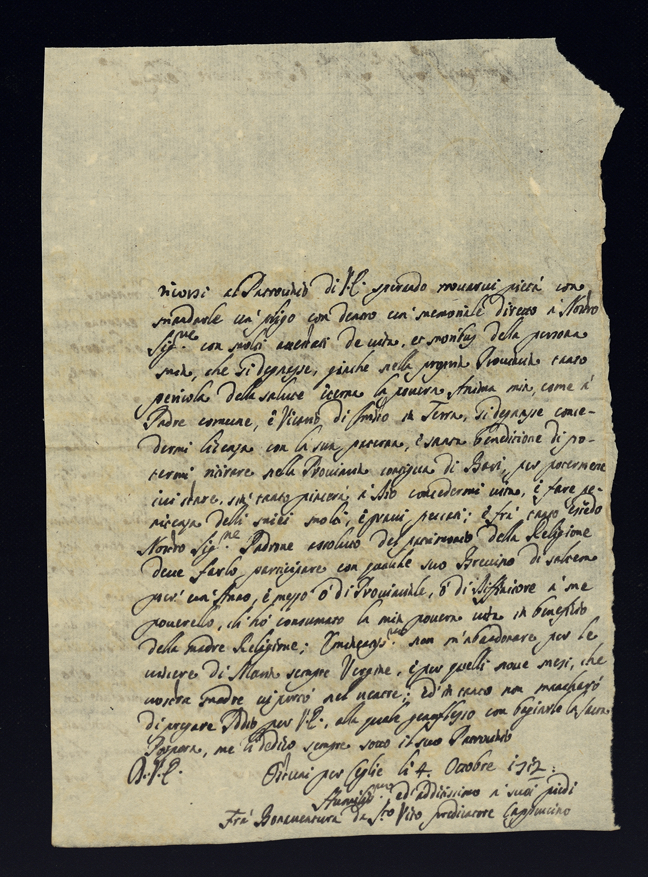 ricorsi al Patrocinio di V.E. sperando trovarvi pietà con
mandarle un' plico con dentro un' memoriale diretto a Nostro
Sig.re con molti attestati de vita, et moribus della persona
mia, che si degnasse, giache nella propria Provincia tanto
pericola della salute eterna la povera Anima mia, come a
Padre comune, è Vicario di Cristo in Terra, si degnasse conce-
dermi licenza con la sua paterna, è santa benedizione di po-
termi ritirare nella Provincia contigua di Bari, per potermene
ivi stare, sin' tanto piacerà a Dio concedermi vita, è fare pe-
nitenza delli miei molti, è gravi peccati; è frà tanto essendo
Nostro Sig.re Padrone assoluto del patrimonio della Religione
deve farlo participare con qualche suo Brevino di
per un' Anno, è mezzo ò di Provinciale, ò di Diffinitore a me
poverello, ch' hò consumato la mia povera vita in beneficio
della madre Religione; non m'abbandonare per le
viscere di Maria sempre Vergine, è per quelli nove mesi, che
vostra madre vi portò nel ventre; ed' in tanto non mancherò
di pregare Iddio per V.E., alla quale genuflesso con bagiarle la sacra
Porpora, me li dedico sempre sotto il suo Patrocinio
D. V.E. Ostuni per Ceglie li 4. Ottobre 1712.
Humiliss.mo ed' addittissimo a suoi piedi
Frà Bonaventura da S.to Vito predicatore Cappuccino